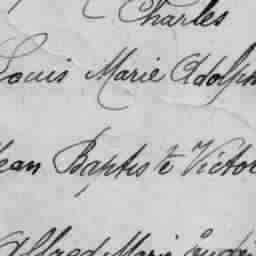 Charles
Louis Marie Adolph
Jean Baptiste Victor
Alfred Marie André